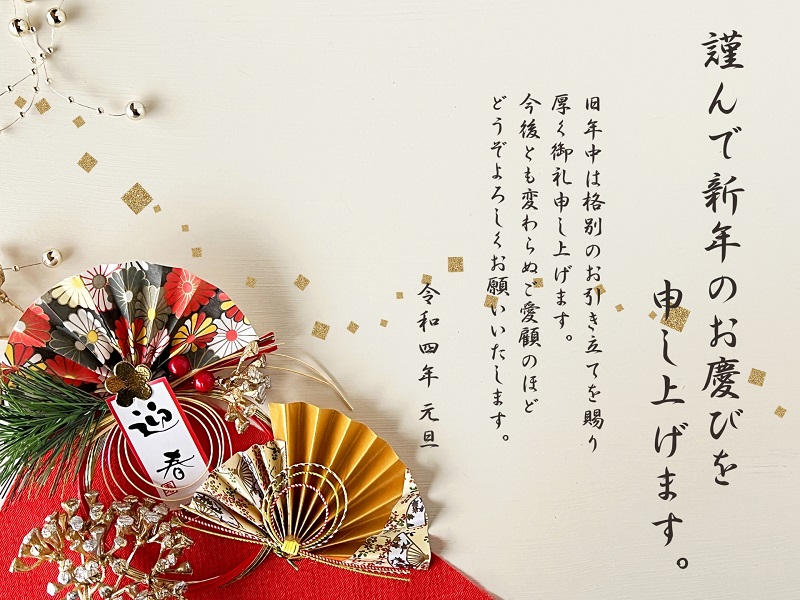 謹んで新年のお慶びを
申し上げます。
旧年中は格別のお引き立てを賜り
厚く御礼申し上げます。
今後とも変わらぬご愛顧のほど
どうぞよろしくお願いいたします。
令和四年 元旦
迎春